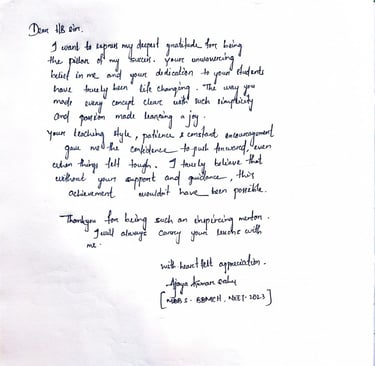 Dear HB sir.
I want to express my deepest gratitude for being
the pillar of my success. Your unwavering
belief in me and your dedication to your students
have truely been life changing. The way you
made every concept clear with such simplicity
and passion made learning a joy.
Your teaching style, patience & constant encouragement
gave me the confidence to push forward, even
when things felt tough. I truely believe that
without your support and guidance, this
achievement wouldn't have been possible.
Thankyou for being such an inspiring mentor.
I will always carry your lessons with
me.
with heartfelt appreciation.
Ajaya Kumar Sahu
[MBBS - BBMCH, NEET-2023]